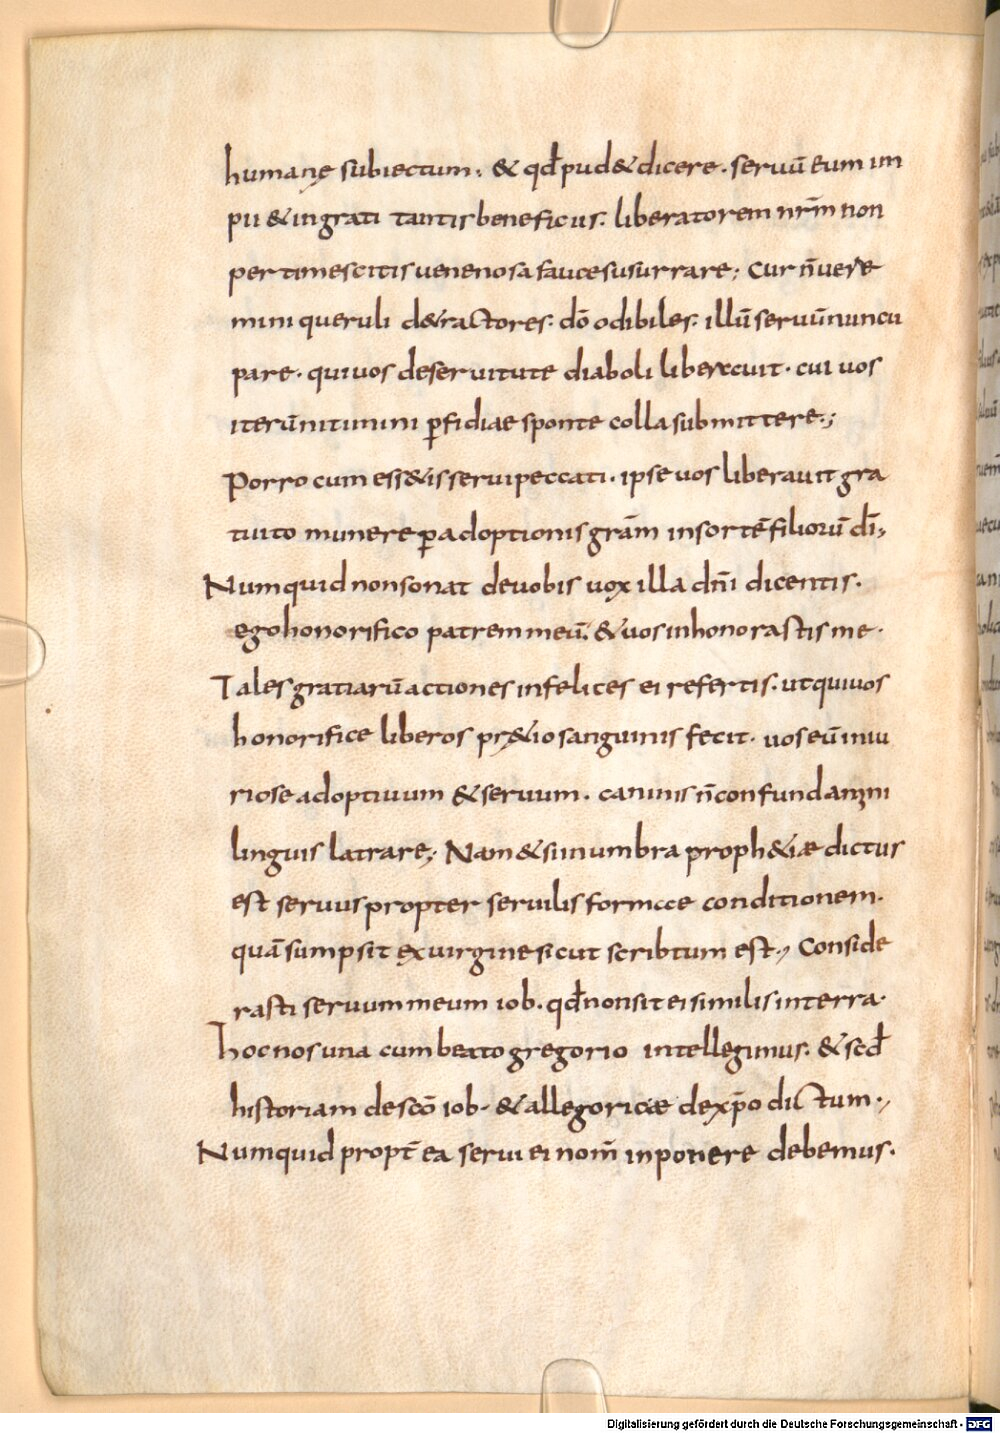 humanę subiectum; & qđ pud& dicere. seruū eum im
pii & ingrati tantis beneficiis. liberatorem nr̄m non
pertimescitis uenenosa fauce susurrare; Cur n̄ uere
mini queruli d&ractores. dō odibiles. illū seruū nuncu
pare. qui uos de seruitute diaboli liberauit. cui uos
iterū nitimini ꝑfidiae sponte colla submittere.;
Porro cum ess&is serui peccati. ipse uos liberauit gra
tuito munere ꝑ adoptionis grām in sortē filiorū dī;
Numquid non sonat de uobis uox illa dn̄i dicentis.
ego honorifico patrem meū. & uos inhonorastis me.
Tales gratiarū actiones infelices ei refertis. ut qui uos
honorifice liberos pr&io sanguinis fecit. uos eū iniu
riose adoptiuum & seruum. caninis n̄ confundamini
linguis latrare; Nam & si in umbra proph&iæ dictus
est seruus propter seruilis formae conditionem.
quā sumpsit ex uirgine sicut scribtum est., Conside
rasti seruum meum iob. qđ non sit ei similis in terra.
hoc nos una cum beato gregorio intellegimus. & scđ
historiam de scō iob. & allegoricæ de xp̄o dictum.,
Numquid propt̄ ea serui ei nom̄ inponere debemus.
Digitalisierung gefördert durch die Deutsche Forschungsgemeinschaft - DFG